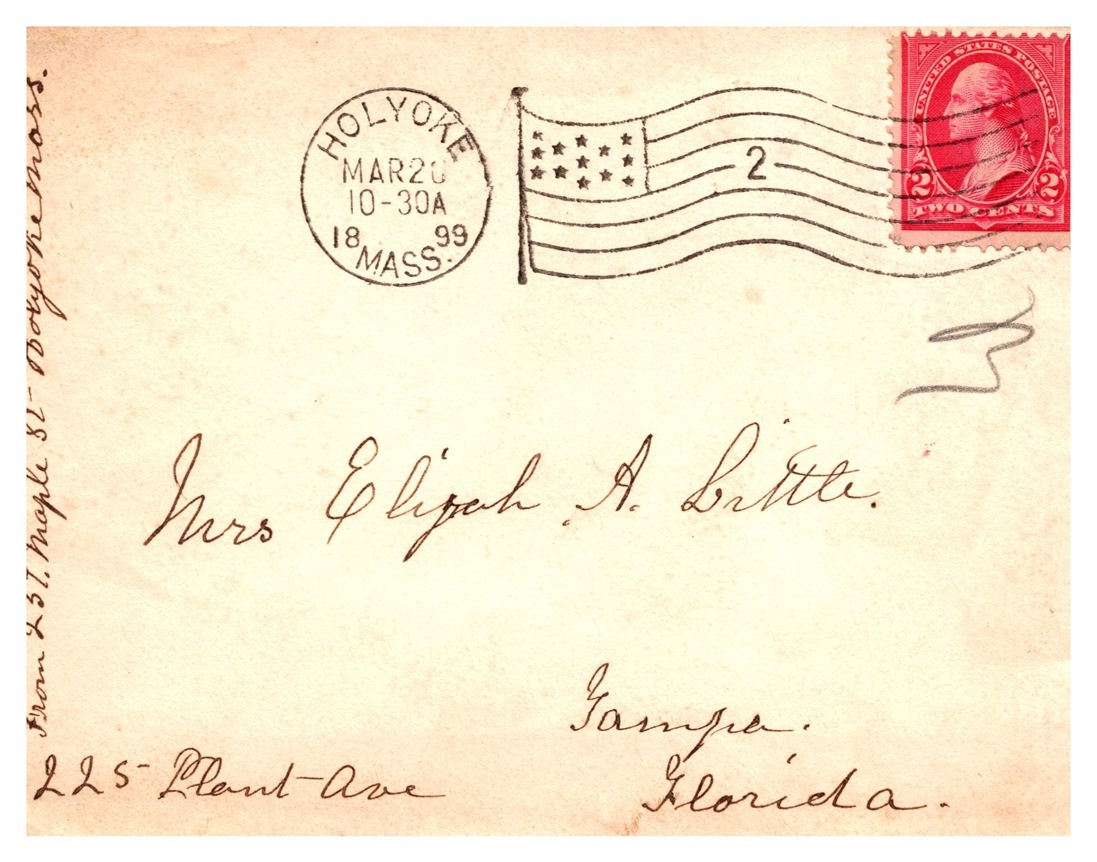 HOLYOKE
MAR 20
10-30A
18 99
MASS.
2
UNITED STATES POSTAGE
2 2
TWO CENTS
Mrs Elijah A. Little.
Tampa.
Florida.
225 Plant Ave
From 237. Maple St- Holyoke Mass.